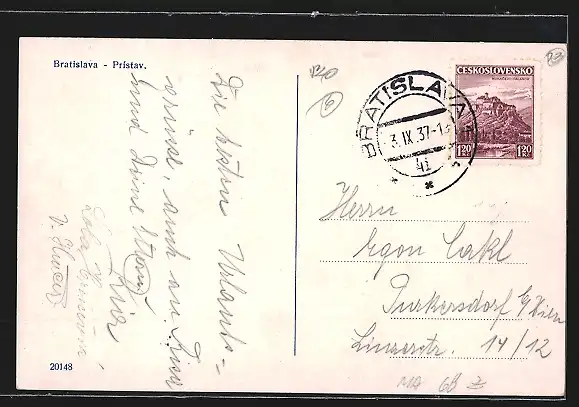 Bratislava - Prístav.
Die besten Urlaubs=
grüsse, auch an Dich
und Deine
20148
BRATISLAVA
3.IX.37-1
4i
ČESKOSLOVENSKO
1.20 1.20
Herrn
Egon Cakl
Purkersdorf b/Wien
Linzerstr. 14/12